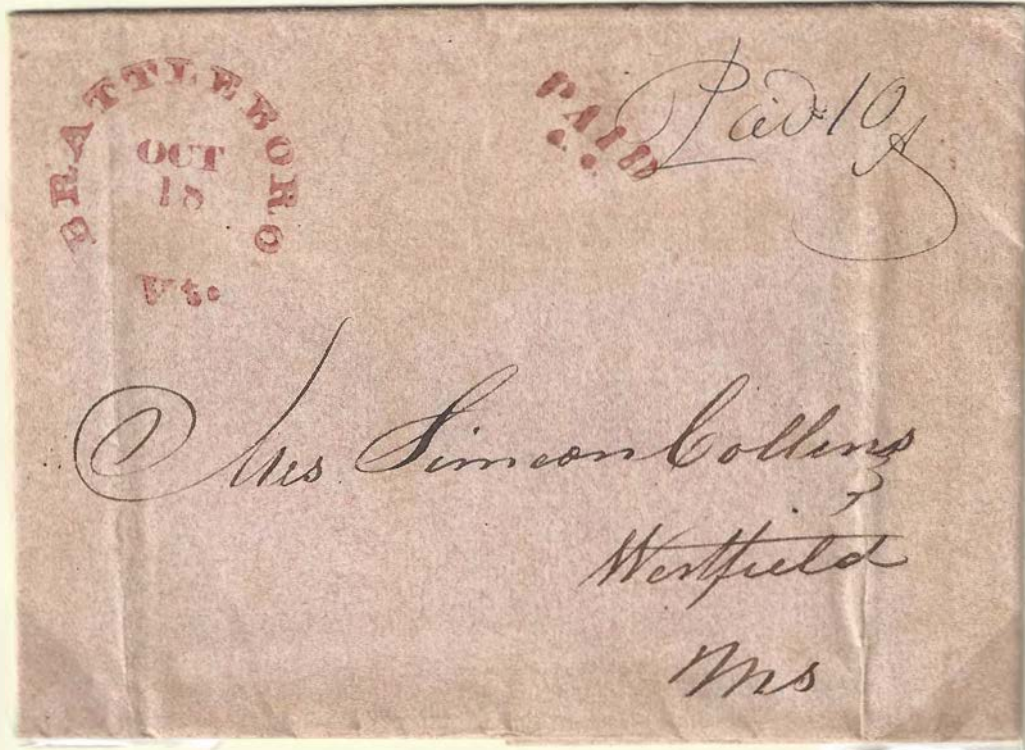 BRATTLEBORO
OCT
18
Vt.
PAID
Paid 10
Mrs Simeon Collins
Westfield
Ms